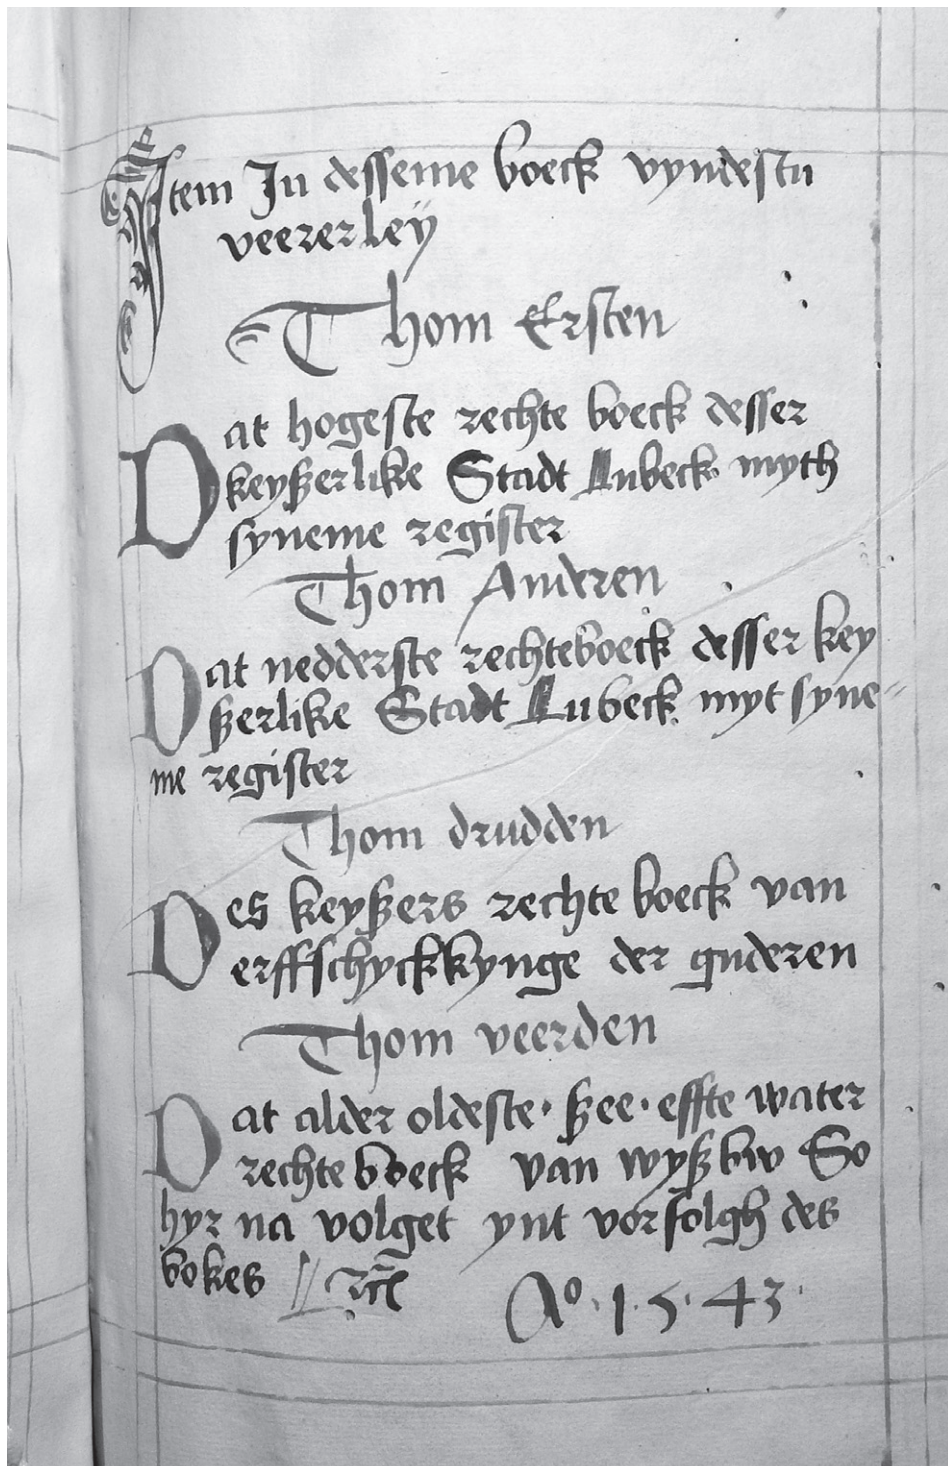 Item In desseme boeck vyndestu
veererleÿ
Thom Ersten
Dat hogeste rechte boeck desser
keyßerlike Stadt Lubeck myth
syneme register
Thom Anderen
Dat nedderste rechteboeck desser key
ßerlike Stadt Lubeck myt syne-
me register
Thom drudden
Des keyßers rechte boeck van
erffschyckkynge der guderen
Thom veerden
Dat alder oldeste · ßee · effte water
rechte boeck van wyßbw So
hyr na volget ynt vorfolgh des
bokes
Ao · 1 · 5 · 43 ·